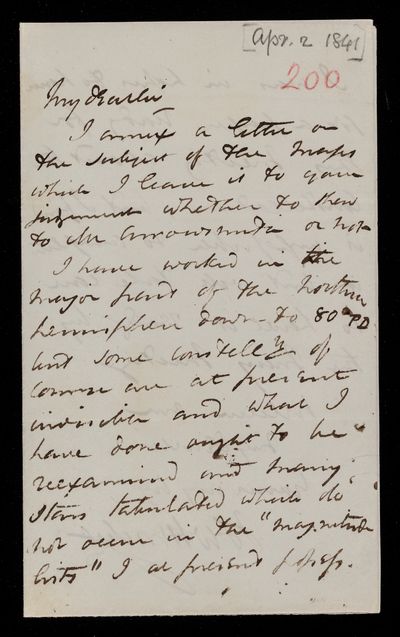 [Apr. 2 1841]
200
My dear Sir
I annex a letter on
the subject of the Maps
which I leave it to your
judgement whether to shew
to Mr Arrowsmith or not
I have worked in the
major part of the Northern
hemisphere down to 80° PD
but some constell.ns of
course are at present
invisible and what I
have done ought to be
reexamined and many
Stars tabulated which do
not occur in the "magnitude
lists" I at present possess.